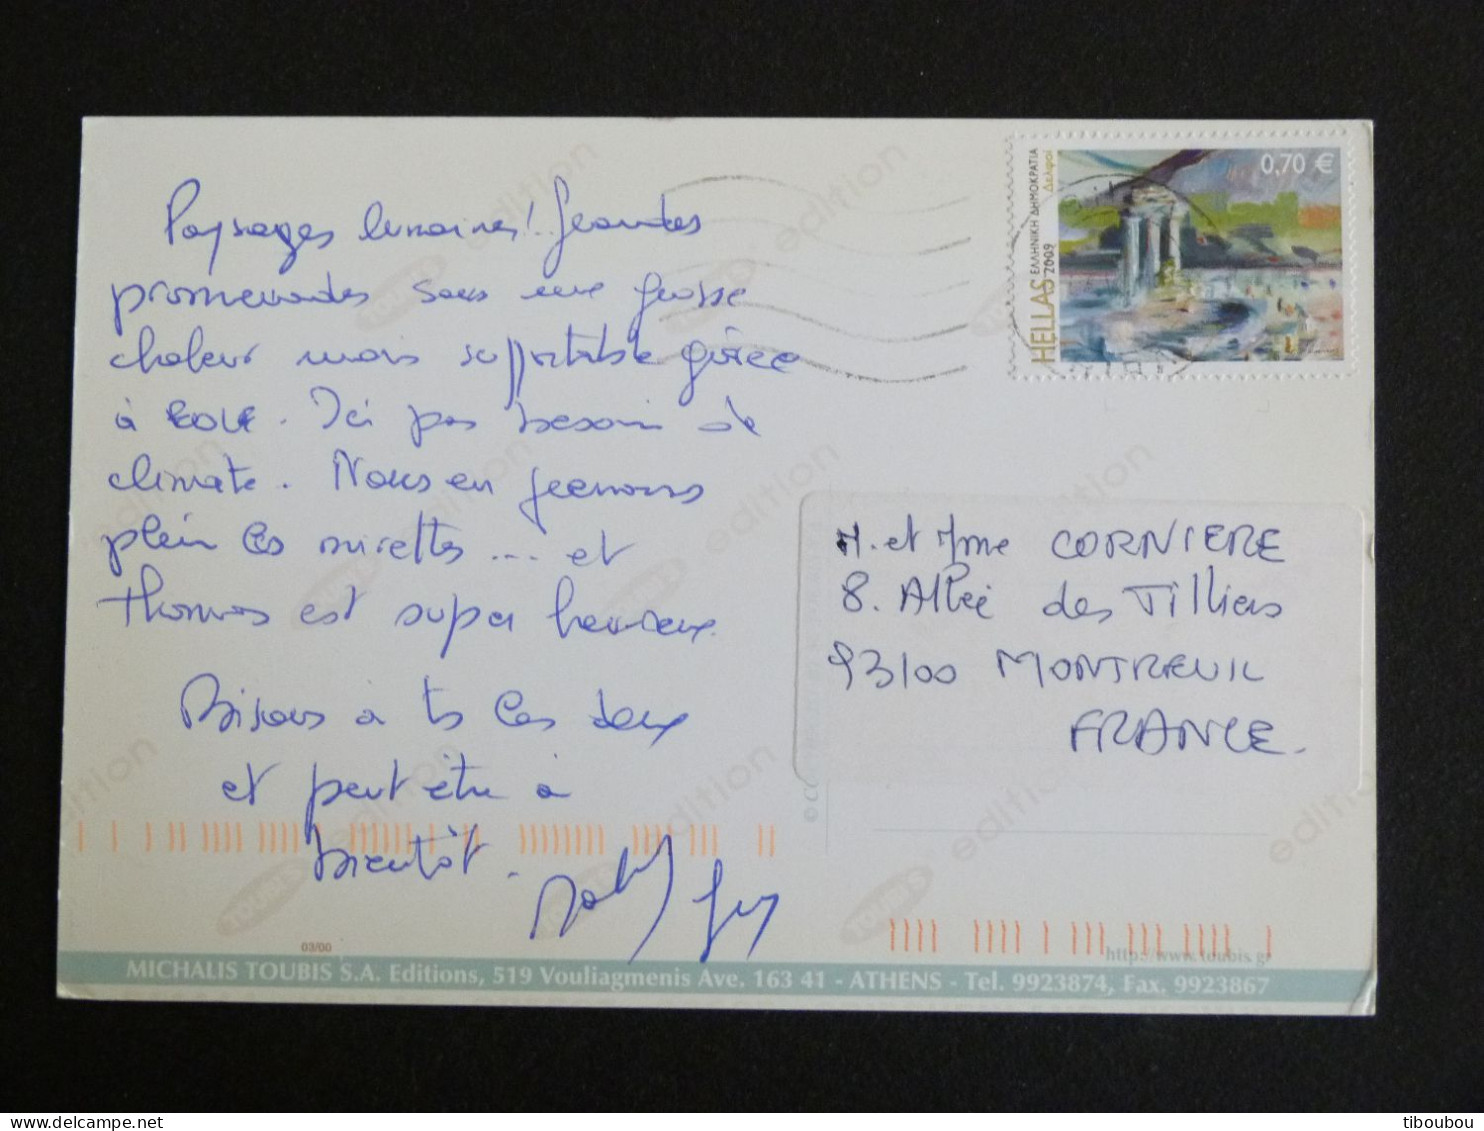 Paysages lunaires! Grandes
promenades sous une grosse
chaleur mais supportable grâce
à EOLE. Ici pas besoin de
climate. Nous en prenons
plein les mirettes ... et
Thomas est super heureux.
Bisous à ts les deux
et peut être à
bientôt.
Guy
HELLAS 2009
ΕΛΛΗΝΙΚΗ ΔΗΜΟΚΡΑΤΙΑ
Δελφοί
0,70 €
M. et Mme CORNIERE
8. Allée des Tilliers
93100 MONTREUIL
FRANCE.
TOUBI'S edition
03/00
http://www.toubis.gr
MICHALIS TOUBIS S.A. Editions, 519 Vouliagmenis Ave. 163 41 - ATHENS - Tel. 9923874, Fax. 9923867
tiboubou